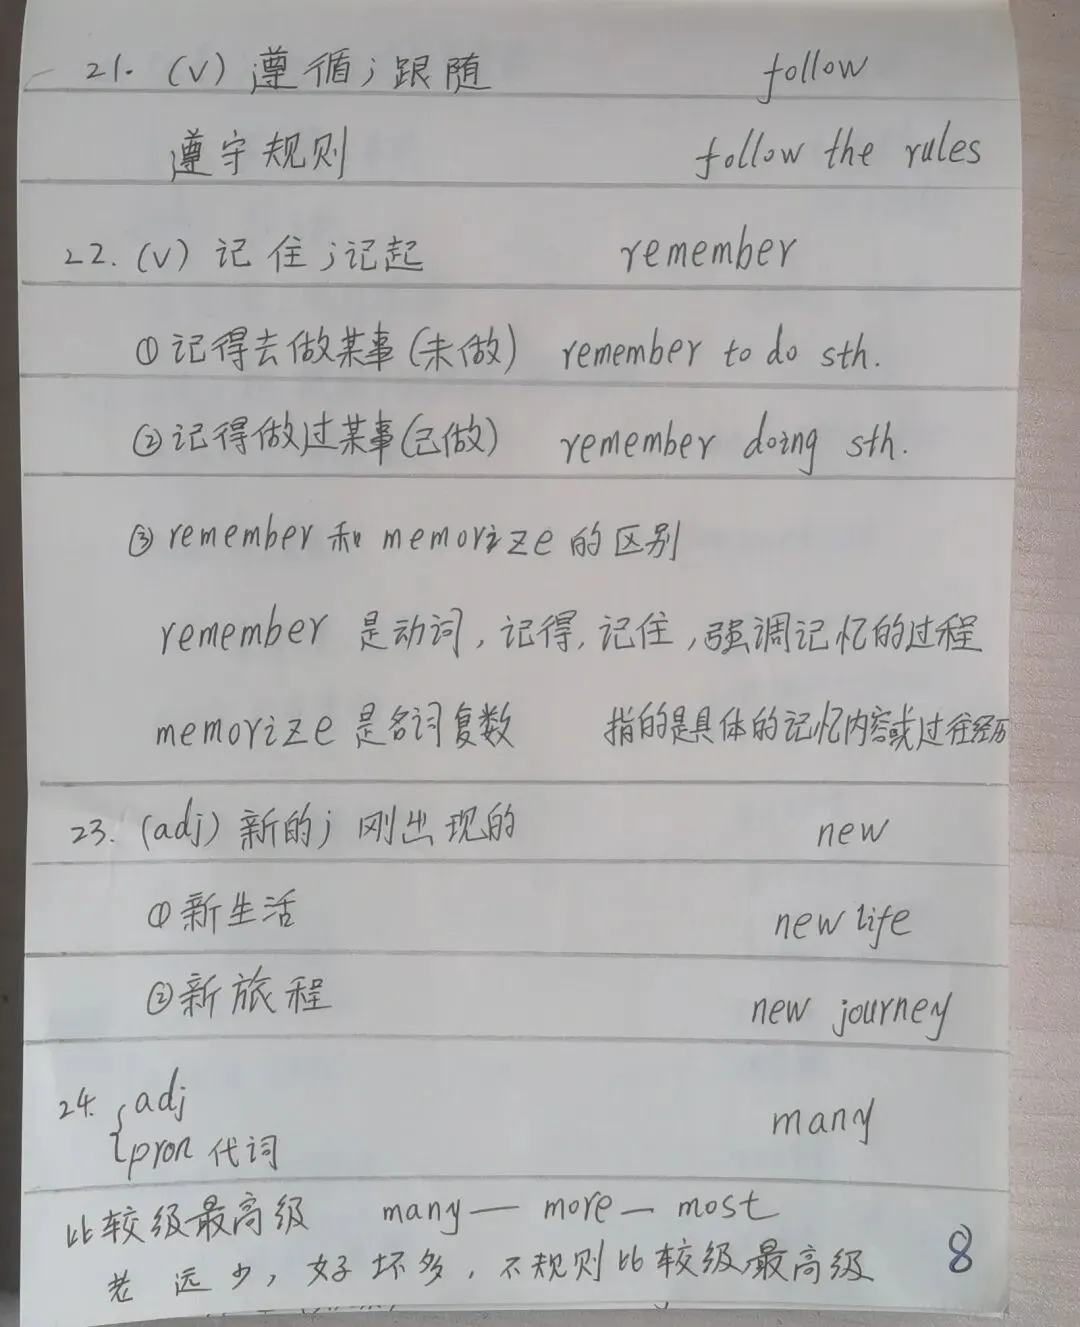 21. (v) 遵循；跟随 follow
遵守规则 follow the rules
22. (v) 记住；记起 remember
①记得去做某事(未做) remember to do sth.
②记得做过某事(已做) remember doing sth.
③ remember 和 memorize 的区别
remember 是动词，记得，记住，强调记忆的过程
memorize 是名词复数 指的是具体的记忆内容或过往经历
23. (adj) 新的；刚出现的 new
①新生活 new life
②新旅程 new journey
24. { adj many
pron 代词
比较级最高级 many — more — most
老 远 少，好 坏 多，不规则比较级最高级
8